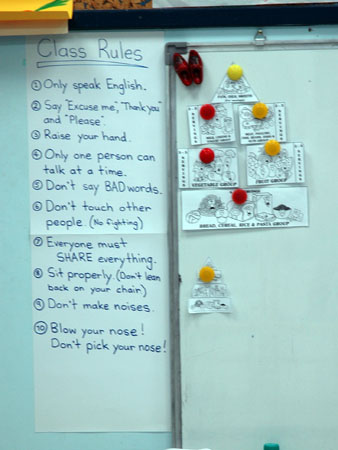 Class Rules
① Only speak English.
② Say "Excuse me", "Thank you"
and "Please".
③ Raise your hand.
④ Only one person can
talk at a time.
⑤ Don't say BAD words.
⑥ Don't touch other
people. (No fighting)
⑦ Everyone must
SHARE everything.
⑧ Sit properly. (Don't lean
back on your chair)
⑨ Don't make noises.
⑩ Blow your nose!
Don't pick your nose!
VEGETABLE GROUP
FRUIT GROUP
BREAD, CEREAL, RICE & PASTA GROUP